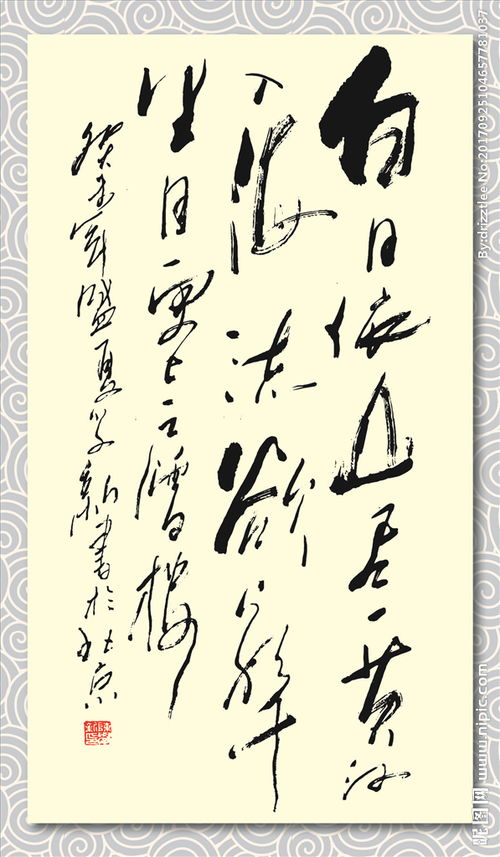 白日依山盡黄河
入海流欲窮千
里目更上一層樓
癸未年盛夏 新書於北京
By:drizztlee No:20170925104657781037
昵图网 www.nipic.com